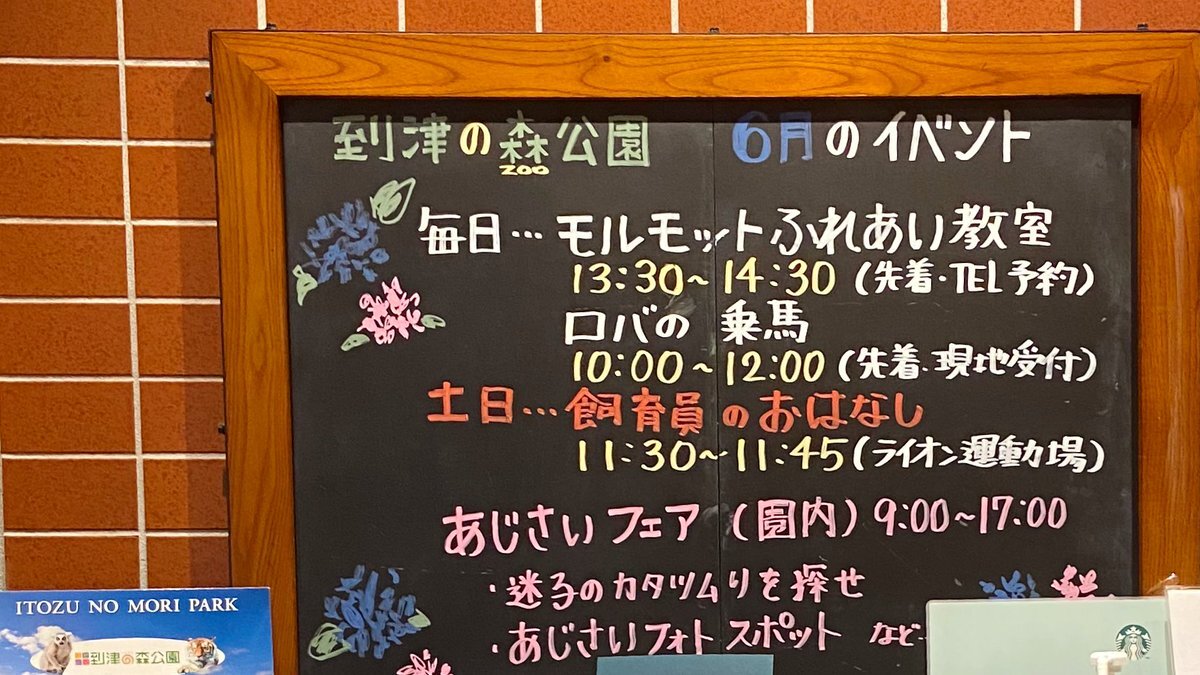 到津の森公園 6月のイベント
ZOO
毎日…モルモットふれあい教室
13:30~14:30 (先着・TEL予約)
ロバの 乗馬
10:00~12:00 (先着・現地受付)
土日…飼育員のおはなし
11:30~11:45 (ライオン運動場)
あじさいフェア (園内) 9:00~17:00
・迷子のカタツムリを探せ
・あじさいフォトスポット など
ITOZU NO MORI PARK
到津の森公園